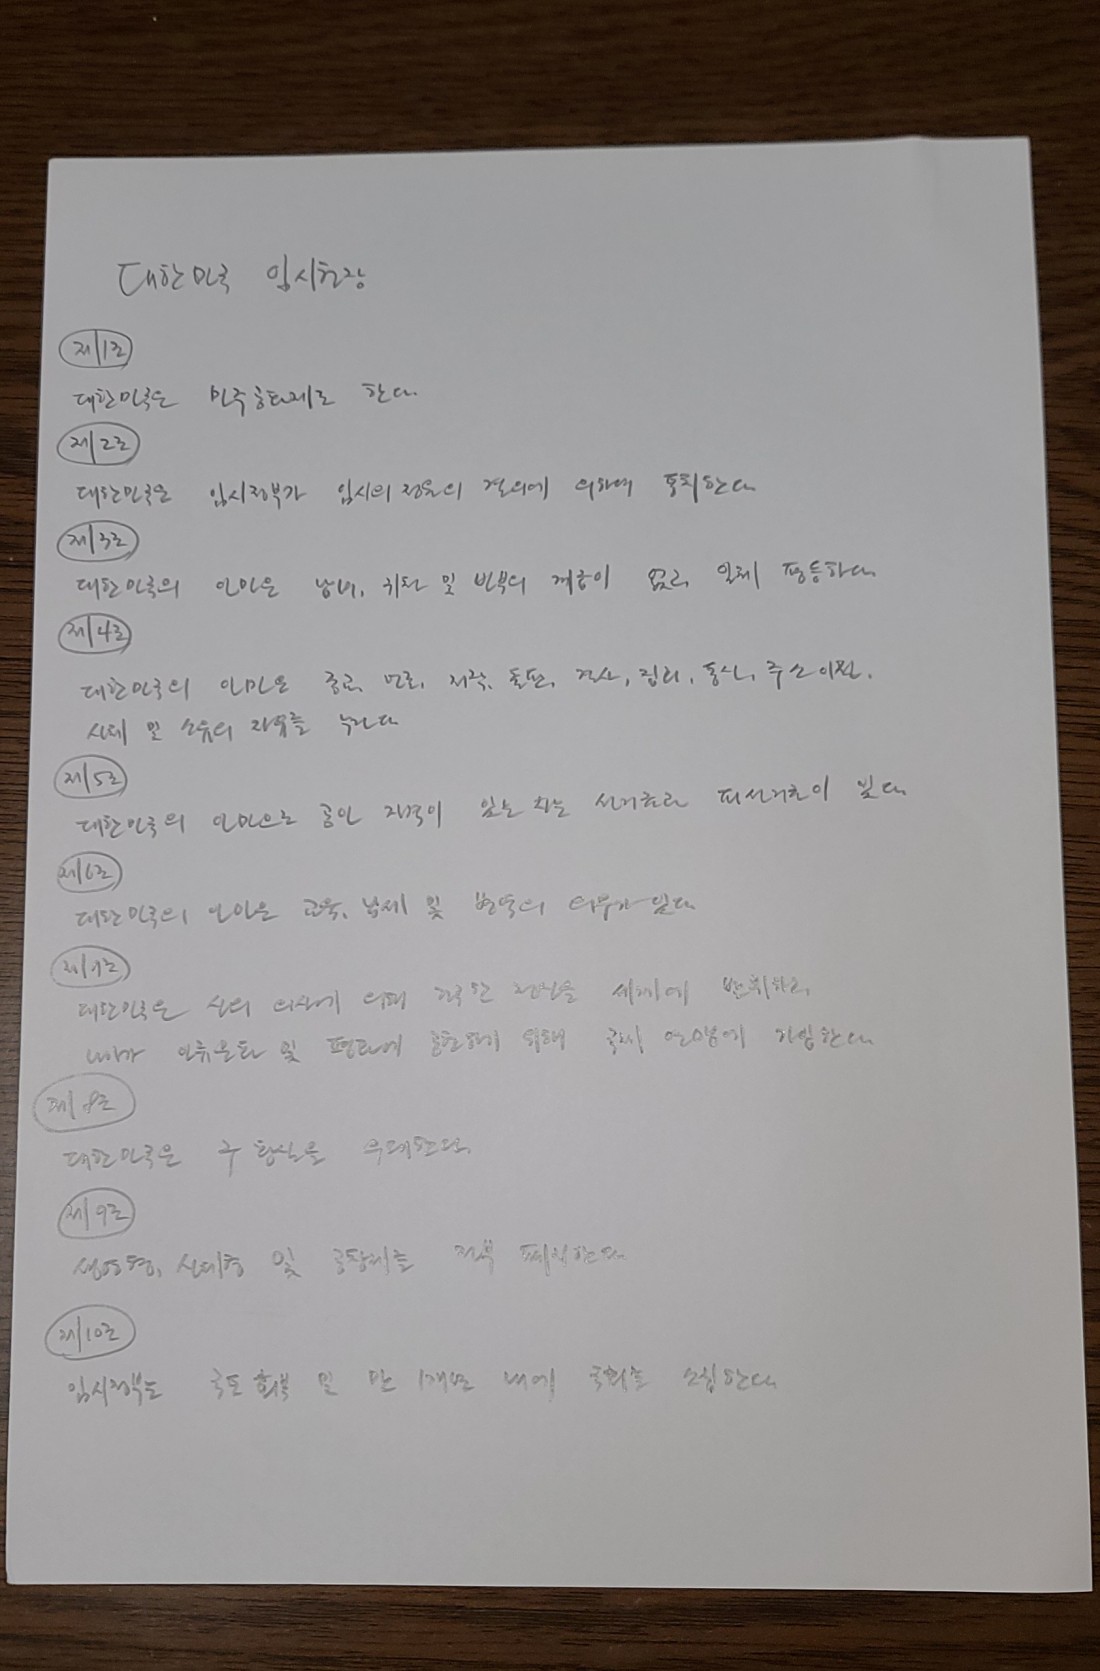 대한민국 임시헌장
제1조
대한민국은 민주공화제로 한다.
제2조
대한민국은 임시정부가 임시의정원의 결의에 의하여 통치한다
제3조
대한민국의 인민은 남녀, 귀천 및 빈부의 계급이 없고 일체 평등하다.
제4조
대한민국의 인민은 종교, 언론, 저작, 출판, 결사, 집회, 통신, 주소이전,
신체 및 소유의 자유를 누린다
제5조
대한민국의 인민으로 공민 자격이 있는 자는 선거권과 피선거권이 있다
제6조
대한민국의 인민은 교육, 납세 및 병역의 의무가 있다
제7조
대한민국은 신의 의사에 의해 건국한 정신을 세계에 발휘하고
나아가 인류문화 및 평화에 공헌하기 위해 국제 연맹에 가입한다
제8조
대한민국은 구 황실을 우대한다.
제9조
생명형, 신체형 및 공창제를 전부 폐지한다
제10조
임시정부는 국토 회복 후 만 1개년 내에 국회를 소집한다